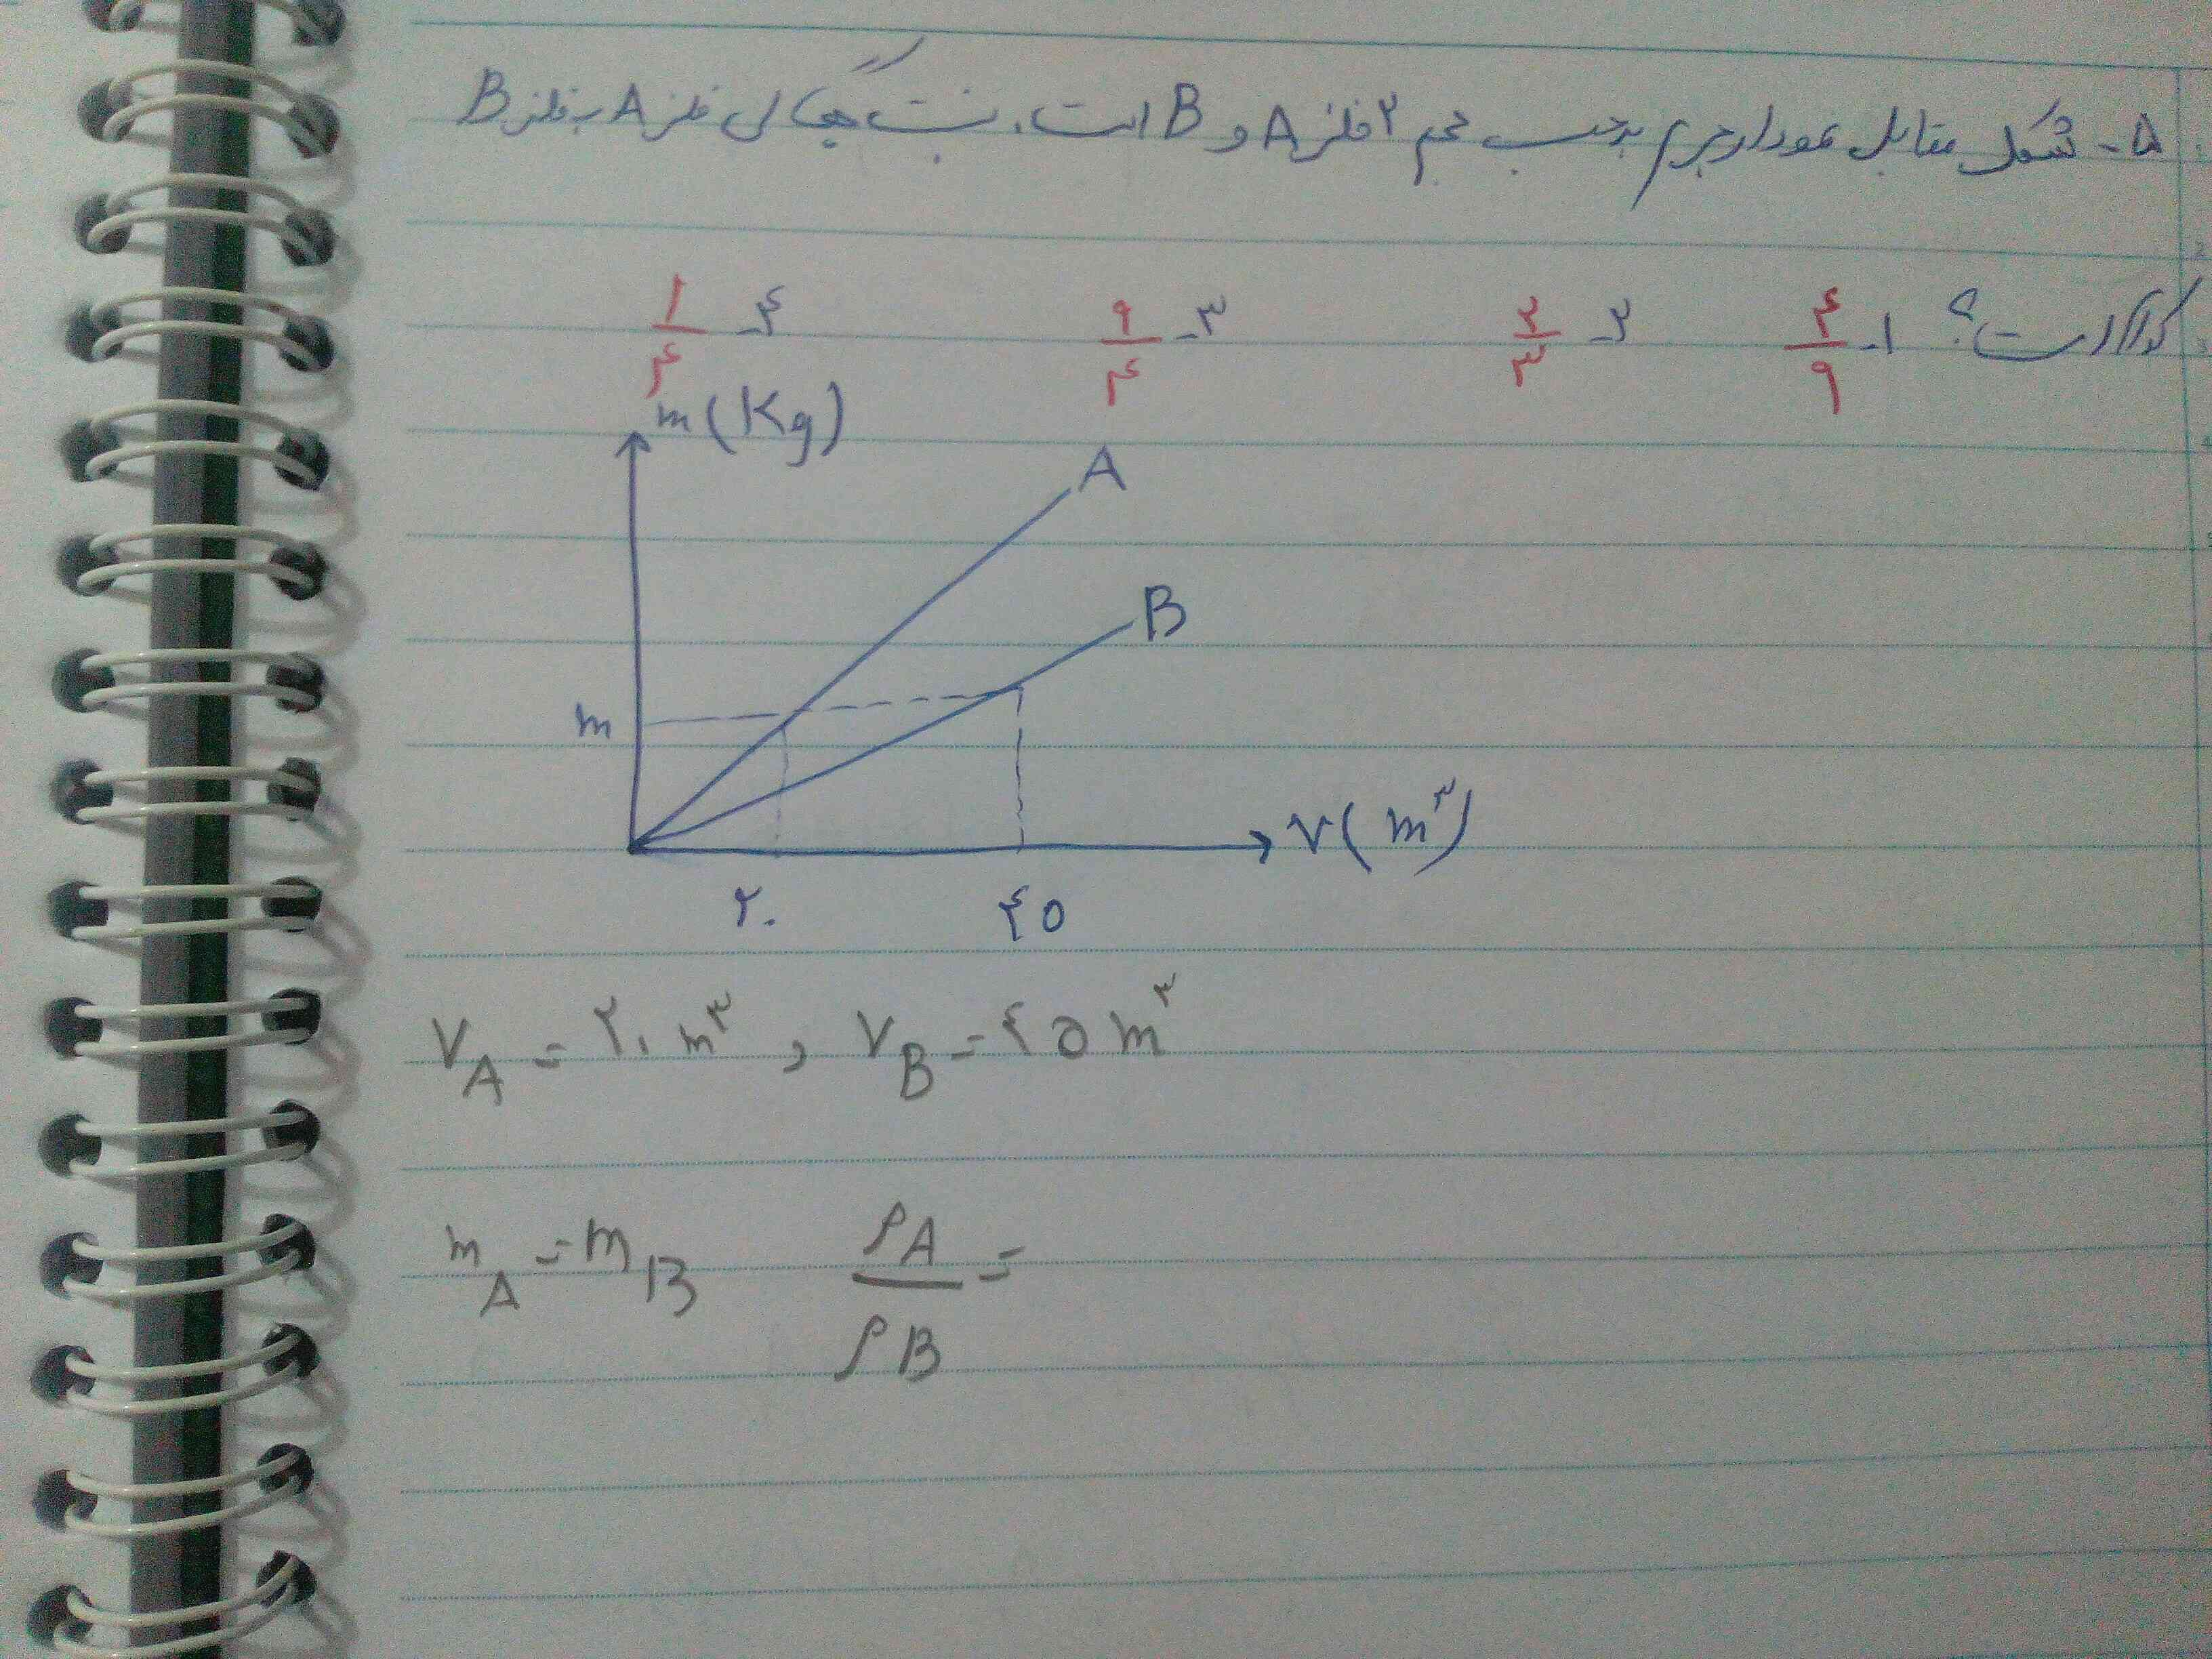 ۵- شکل مقابل نمودار جرم برحسب حجم ۲ فلز A و B است. نسبت چگالی فلز A به فلز B
کدام است؟ ۱- ۴/۹ ۲- ۲/۳ ۳- ۹/۴ ۴- ۱/۴
m (Kg)
A
B
m
V (m³)
۲۰ ۴۵
V_A = ۲۰ m³ , V_B = ۴۵ m³
m_A = m_B ρA/ρB =